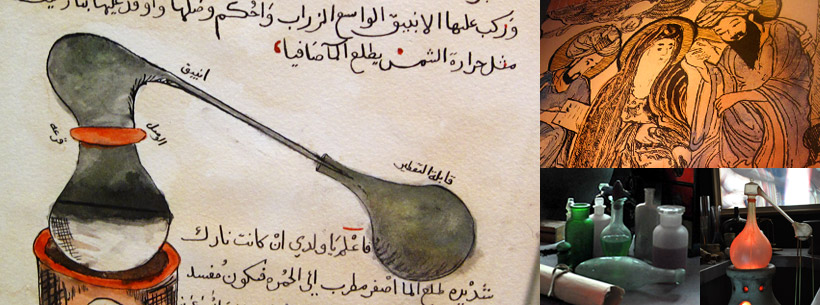 وركب عليها الانبيق الواسع الزراب واحكم وصلها واوقد عليها
مثل حرارة الشمس يطلع الما صافيا
انبيق
الوصل
قرعه
قابلة التقطير
فاعلم يا ولدي ان كانت نارك
شديده طلع الما اصفر مطرب الى الحمره فيكون مفسد